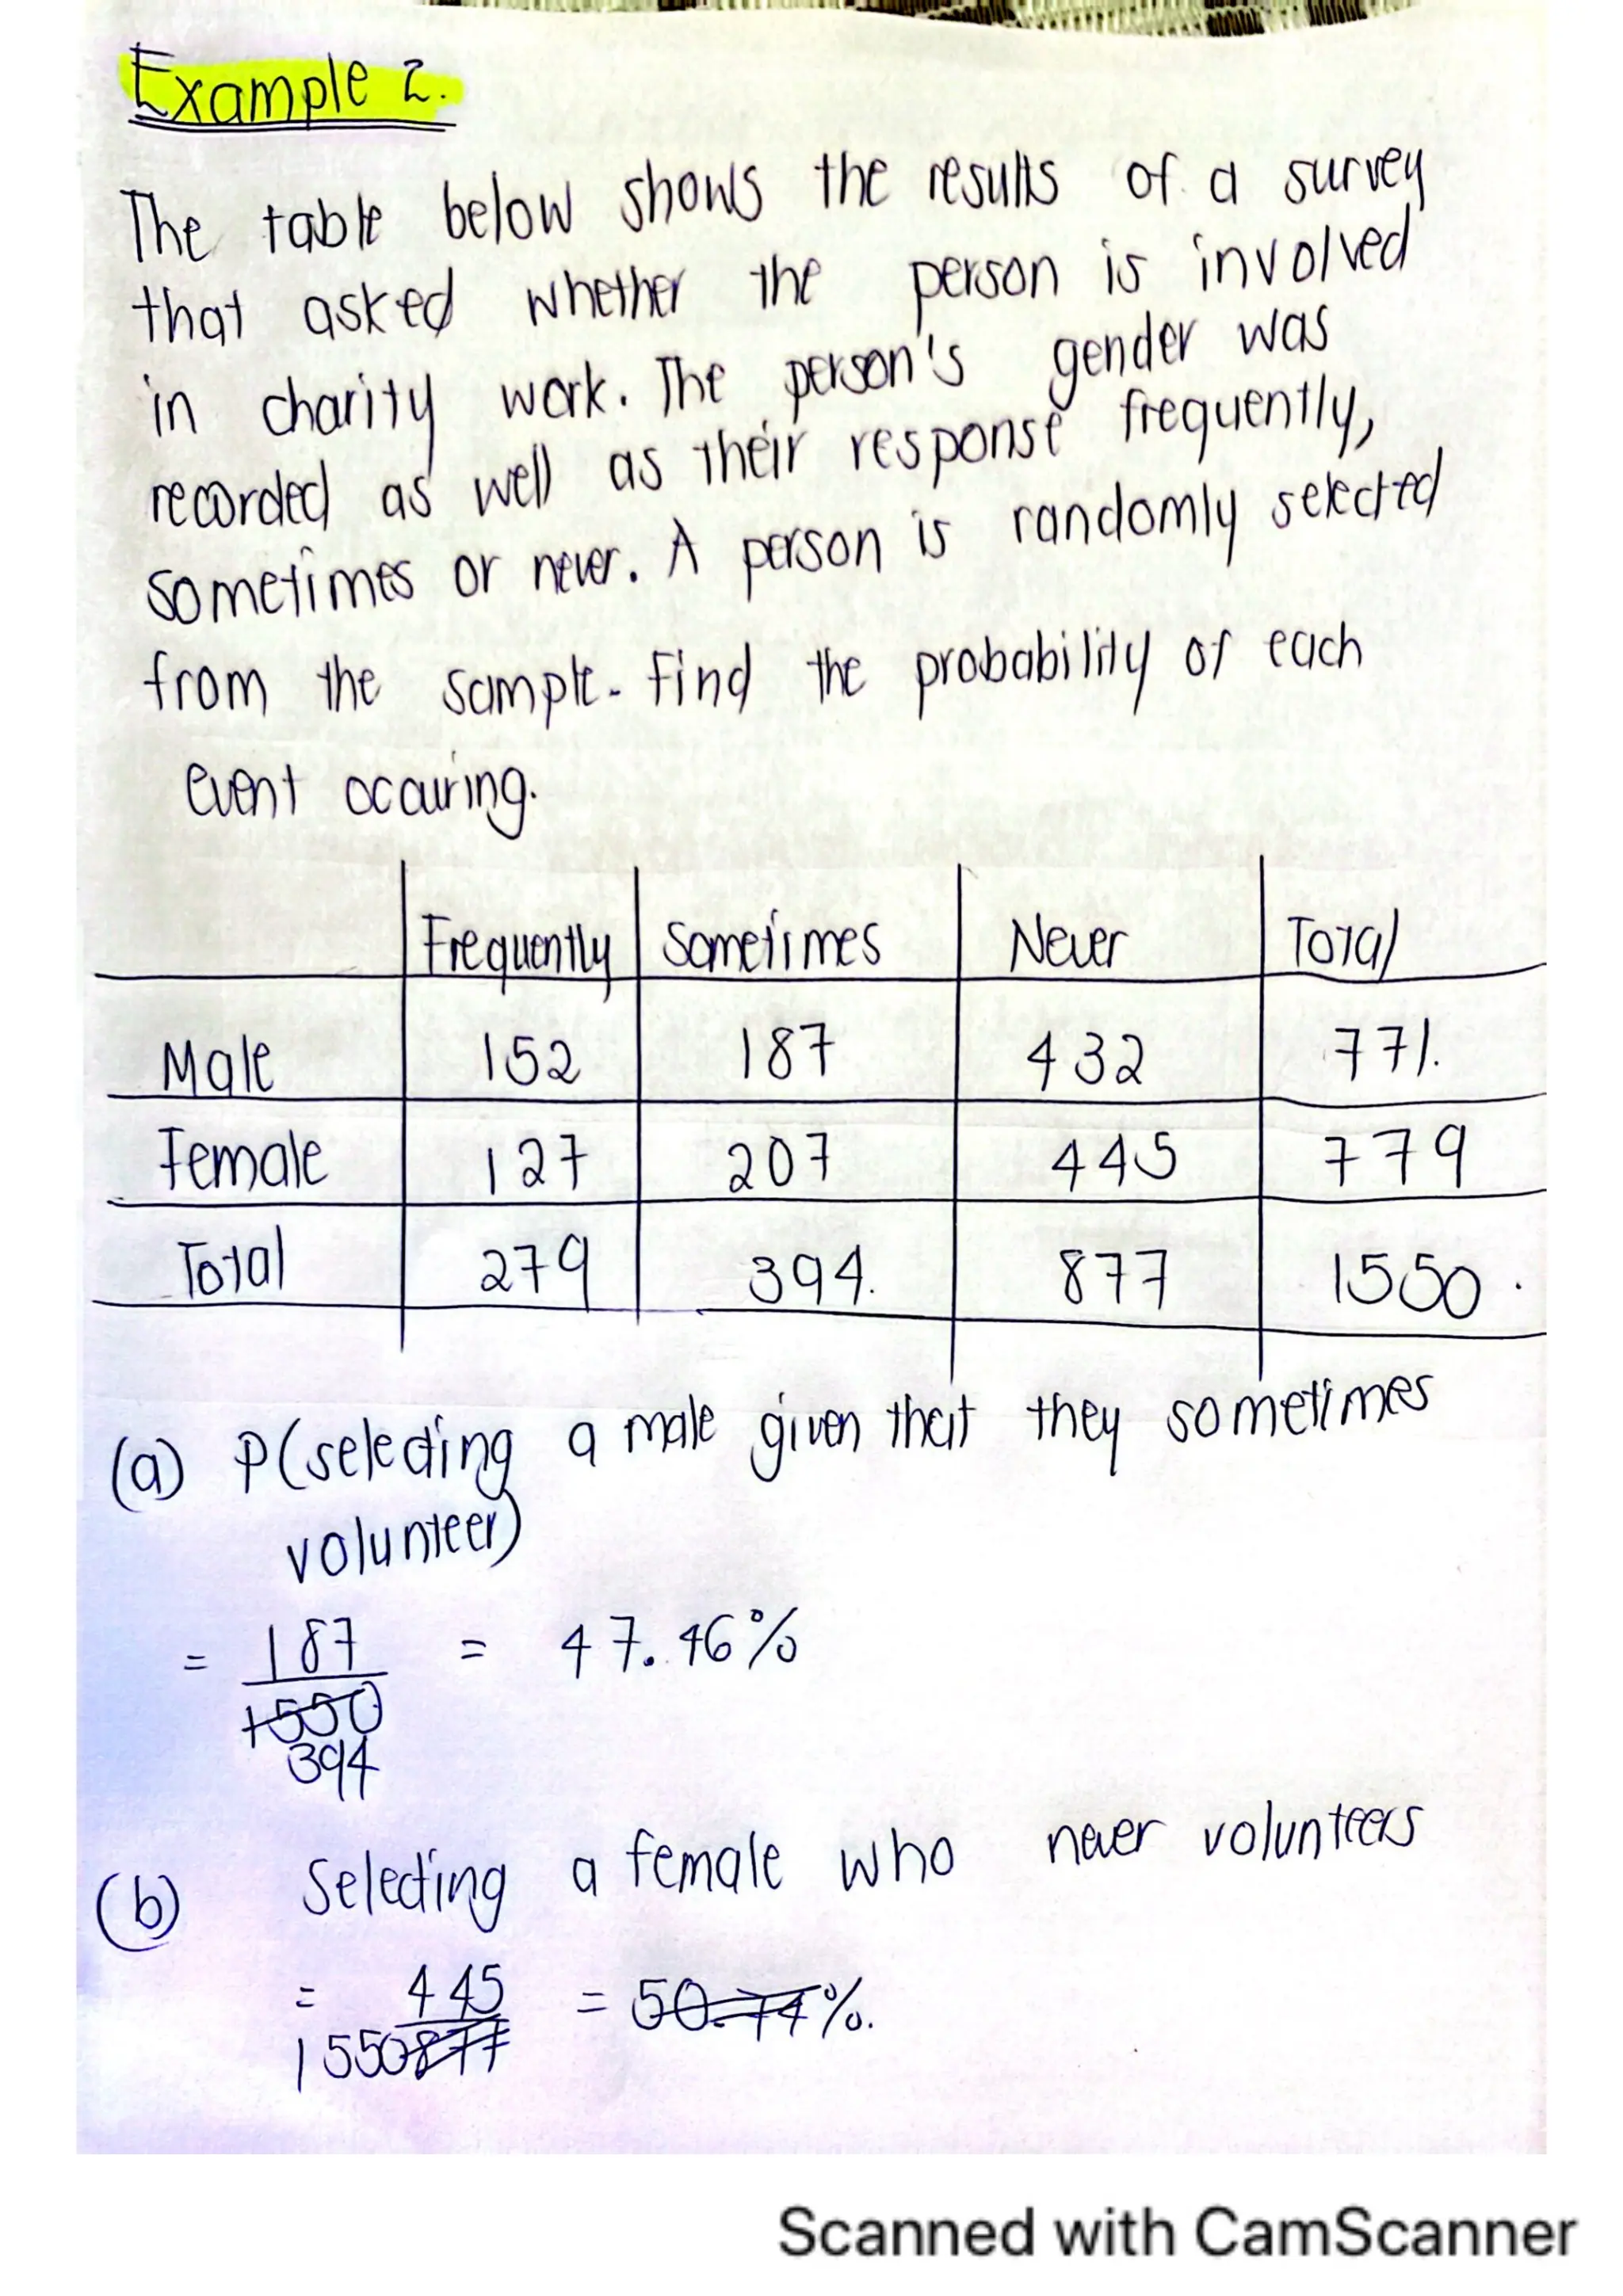 Example 2.
The table below shows the results of a survey
that asked whether the person is involved
in charity work. The person's gender was
recorded as well as their response frequently,
sometimes or never. A person is randomly selected
from the sample. Find the probability of each
event occuring.
Frequently Sometimes Never Total
Male 152 187 432 771.
Female 127 207 445 779
Total 279 394. 877 1550.
(a) P(selecting a male given that they sometimes
volunteer)
= 187 = 47.46%
1550
394
(b) Selecting a female who never volunteers
= 445 = 50.74%.
1550 877
Scanned with CamScanner